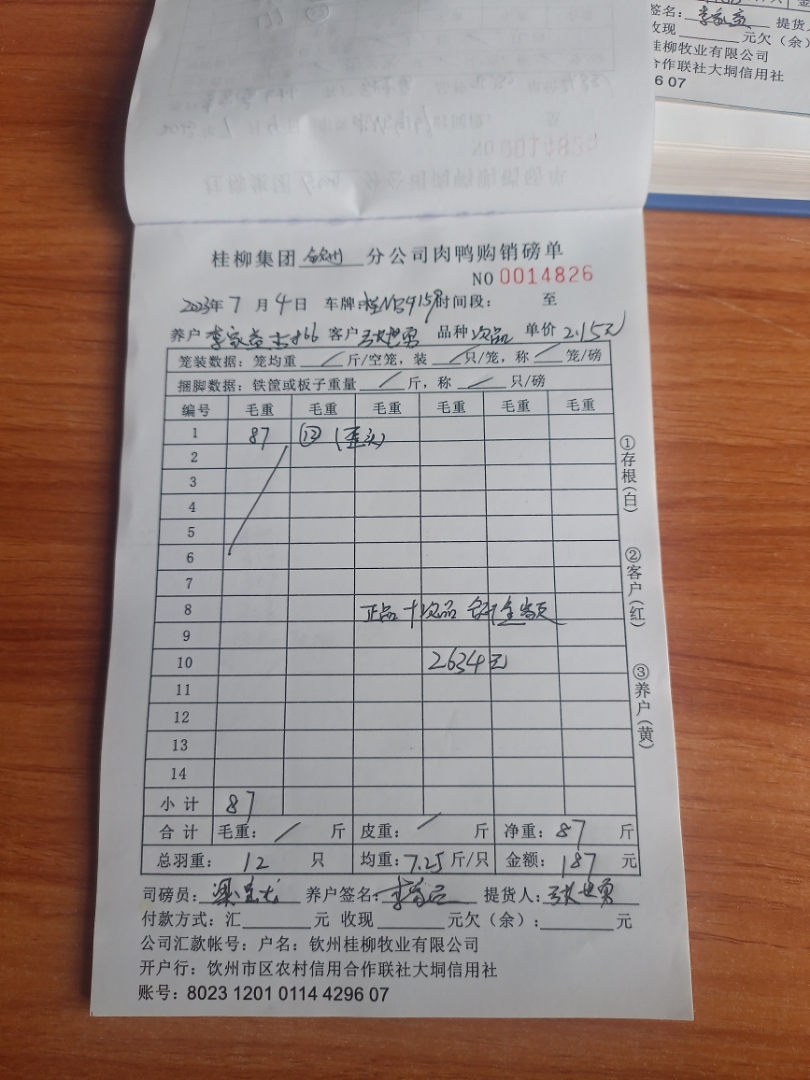 签名: 提货人
收现 元欠（余）
桂柳牧业有限公司
合作联社大垌信用社
6 07
桂柳集团 钦州 分公司肉鸭购销磅单
NO 0014826
2023年 7 月 4 日 车牌: 桂N 时间段: 至
养户 李家 客户 张世勇 品种 次品 单价 2.15元
笼装数据: 笼均重 / 斤/空笼, 装 / 只/笼, 称 / 笼/磅
捆脚数据: 铁筐或板子重量 / 斤, 称 / 只/磅
编号 毛重 毛重 毛重 毛重 毛重 毛重
1 87 ⑫ (歪头)
2
3
4
5
6
7
8 正品+次品 合计金额
9
10 2634元
11
12
13
14
小计 87
合计 毛重: / 斤 皮重: / 斤 净重: 87 斤
总羽重: 12 只 均重: 7.25 斤/只 金额: 187 元
司磅员: 养户签名: 提货人: 张世勇
付款方式: 汇 元 收现 元欠（余）: 元
公司汇款帐号: 户名: 钦州桂柳牧业有限公司
开户行: 钦州市区农村信用合作联社大垌信用社
账号: 8023 1201 0114 4296 07
①存根(白)
②客户(红)
③养户(黄)